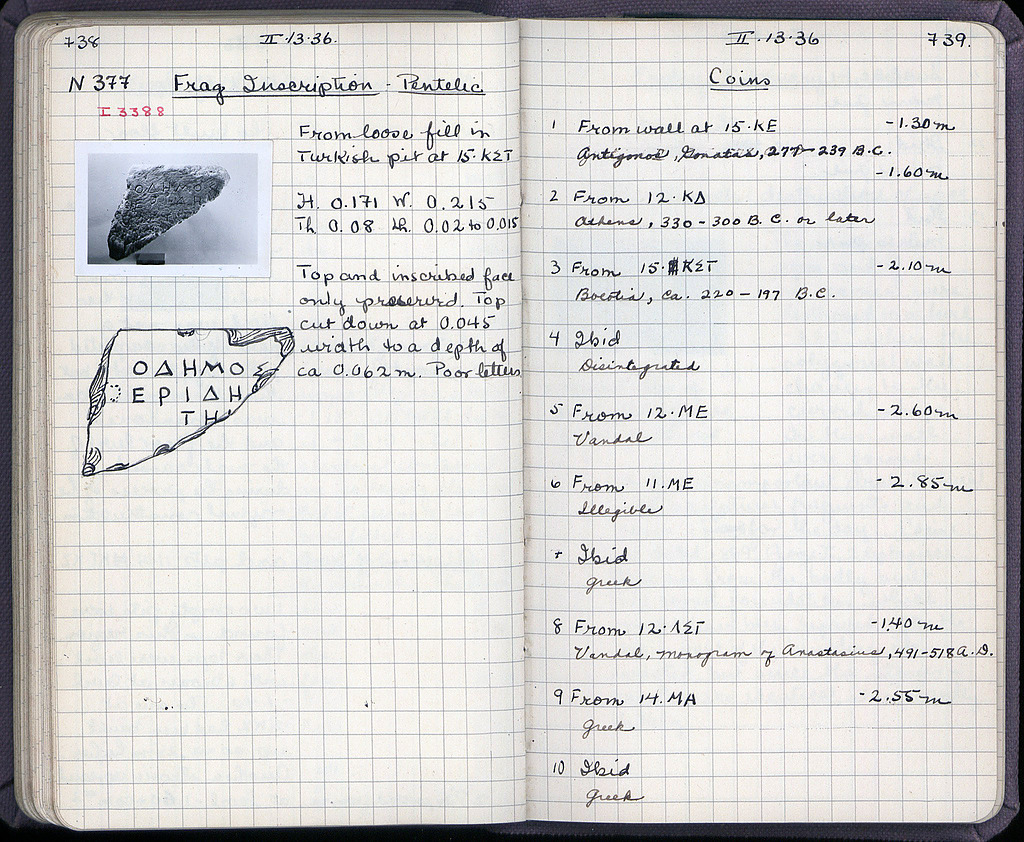 738
II·13·36.
N 377 Frag Inscription - Pentelic
I 3388
From loose fill in
Turkish pit at 15·ΚΣΤ
H. 0.171 W. 0.215
Th. 0.08 Lh. 0.02 to 0.015
Top and inscribed face
only preserved. Top
cut down at 0.045
width to a depth of
ca 0.062 m. Poor letters
ΟΔΗΜΟΣ
ΕΡΙΔΗ
ΤΗ
II·13·36
739.
Coins
1 From wall at 15·ΚΕ -1.30m
Antigonos Gonatas, 277-239 B.C.
-1.60m
2 From 12·ΚΔ
Athens, 330-300 B.C. or later
3 From 15·ΚΣΤ -2.10m
Boeotia, ca. 220-197 B.C.
4 Ibid
Disintegrated
5 From 12·ΜΕ -2.60m
Vandal
6 From 11.ΜΕ -2.85m
Illegible
7 Ibid
Greek
8 From 12·ΛΣΤ -1.40m
Vandal, monogram of Anastasius, 491-518 A.D.
9 From 14.ΜΑ -2.55m
Greek
10 Ibid
Greek